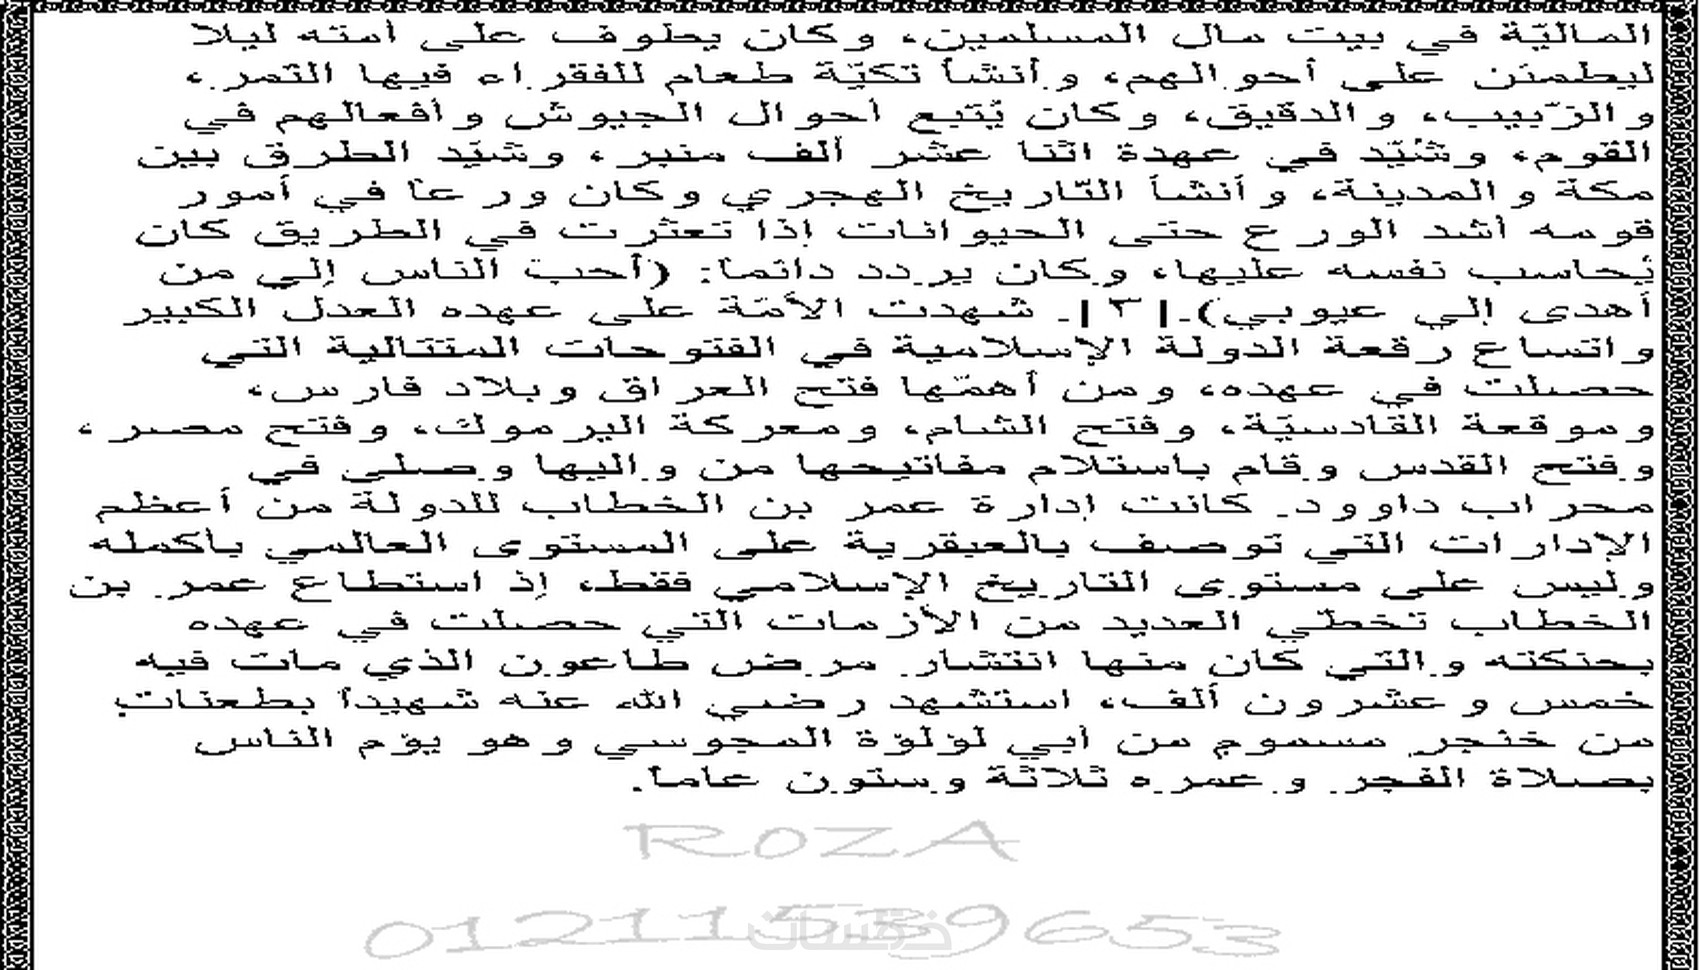 الماليّة في بيت مال المسلمين، وكان يطوف على أمته ليلا
ليطمئن على أحوالهم، وأنشأ تكيّة طعام للفقراء فيها التمر،
والزّبيب، والدقيق، وكان يّتبع أحوال الجيوش وأفعالهم في
القوم، وشُيّد في عهدة اثنا عشر ألف منبر، وشيّد الطرق بين
مكة والمدينة، وأنشأ التّاريخ الهجري وكان ورعاً في أمور
قومه أشد الورع حتى الحيوانات إذا تعثرت في الطريق كان
يُحاسب نفسه عليها، وكان يردد دائماً: (أحبّ الناس إلي من
أهدى إلي عيوبي).[٣]. شهدت الأمّة على عهده العدل الكبير
واتساع رقعة الدولة الإسلامية في الفتوحات المتتالية التي
حصلت في عهده، ومن أهمّها فتح العراق وبلاد فارس،
وموقعة القادسيّة، وفتح الشام، ومعركة اليرموك، وفتح مصر،
وفتح القدس وقام باستلام مفاتيحها من واليها وصلي في
محراب داوود. كانت إدارة عمر بن الخطاب للدولة من أعظم
الإدارات التي توصف بالعبقرية على المستوى العالمي بأكمله
وليس على مستوى التاريخ الإسلامي فقط، إذ استطاع عمر بن
الخطاب تخطّي العديد من الأزمات التي حصلت في عهده
بحنكته والتي كان منها انتشار مرض طاعون الذي مات فيه
خمس وعشرون ألف، استشهد رضي الله عنه شهيداً بطعنات
من خنجر مسموم من أبي لؤلؤة المجوسي وهو يؤم الناس
بصلاة الفجر وعمره ثلاثة وستون عاماً.
ROZA
01211539653
خمسات